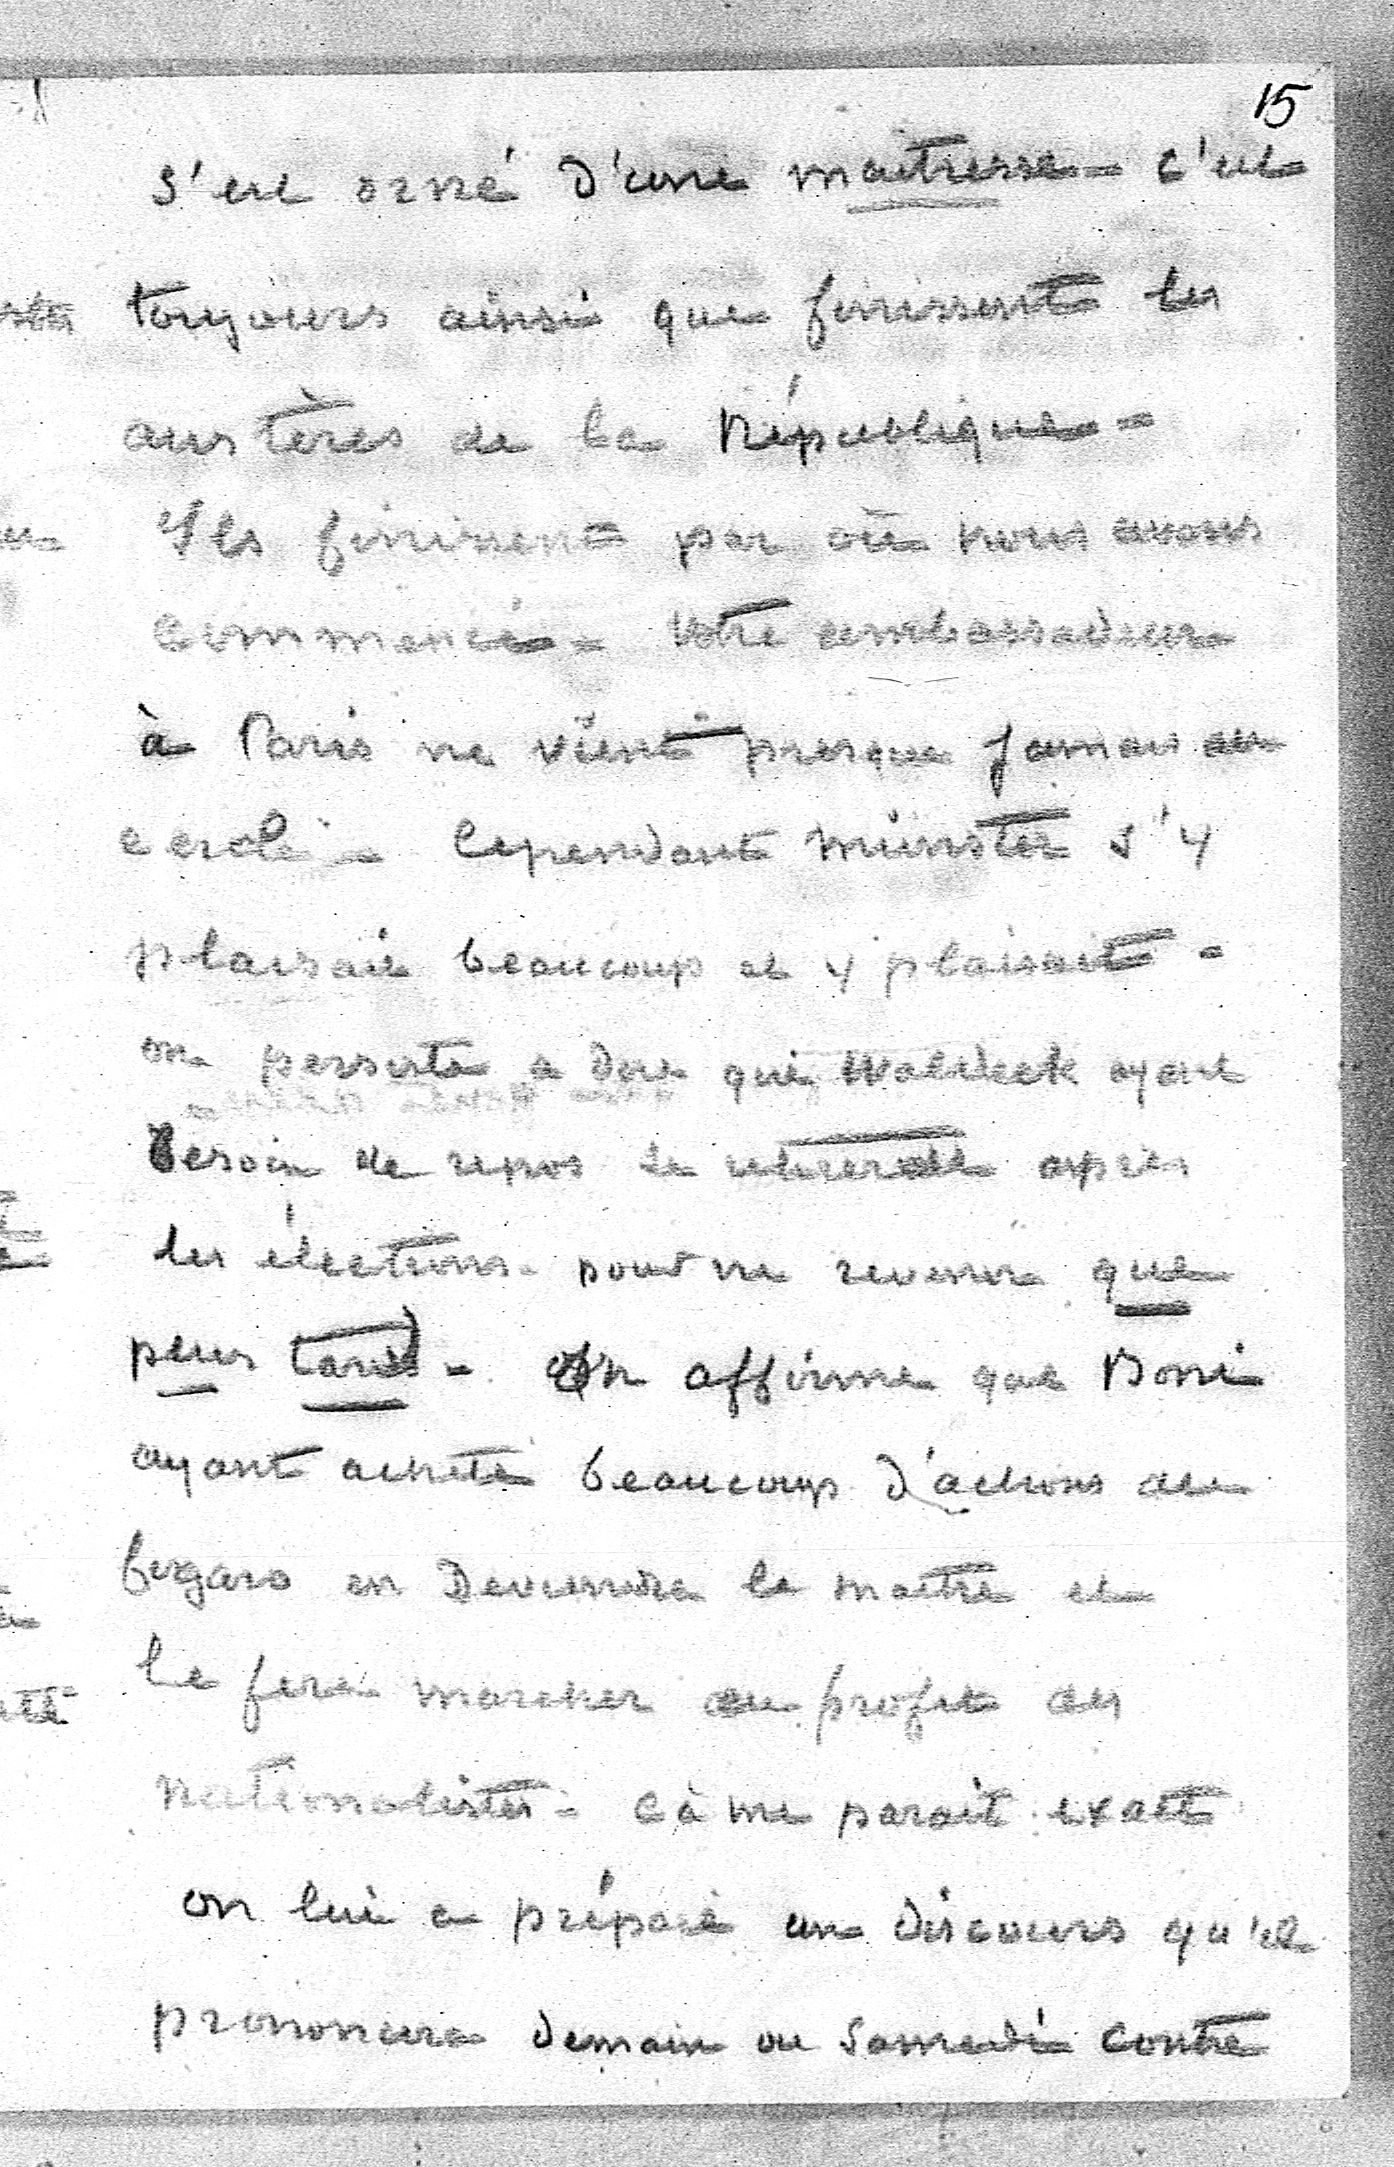 15
s'est orné d'une maitresse - c'est
toujours ainsi que finissent les
austères de la République -
Ils finissent par où nous avons
commencé - Votre ambassadeur
à Paris ne vient presque jamais au
cercle - Cependant Münster s'y
plaisait beaucoup et y plaisait -
on persiste a dire que Waldeck ayant
besoin de repos se retirerait après
les élections - pour ne revenir que
plus tard - On affirme que Boni
ayant acheté beaucoup d'actions du
figaro en deviendra le maitre et
le fera marcher au profit des
nationalistes - cà me parait exact
on lui a préparé un discours qu'il
prononcera demain ou Samedi contre